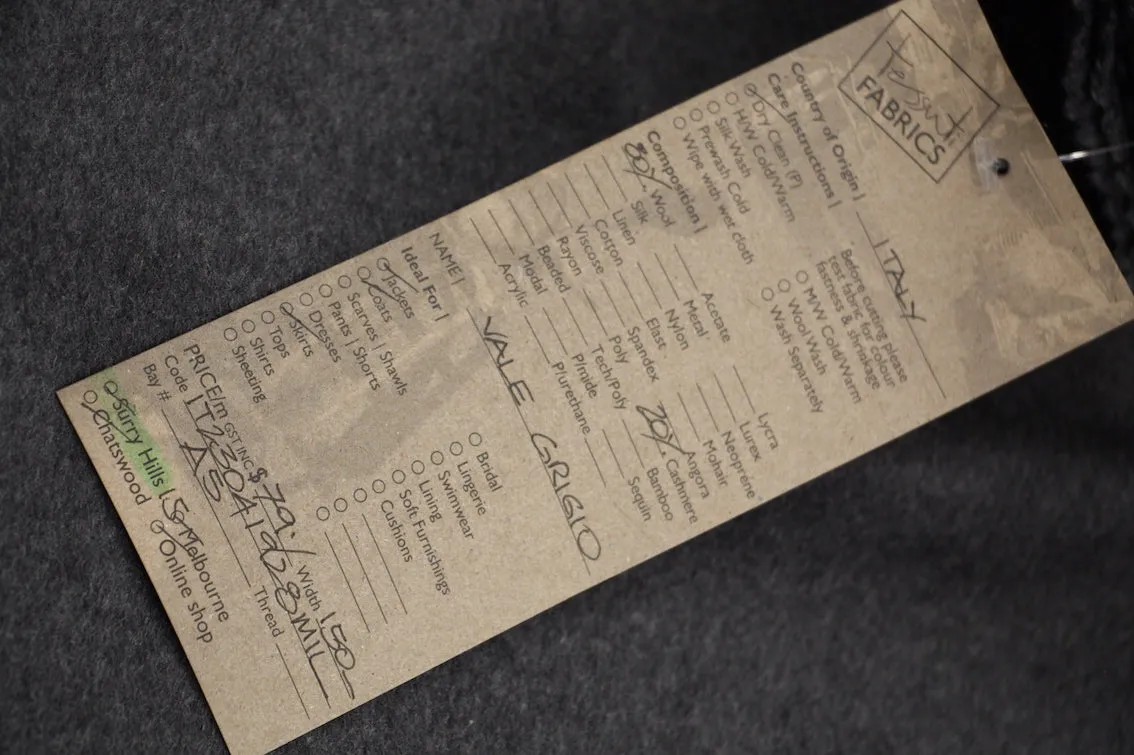 Tessuti
FABRICS
Country of Origin | ITALY
Care Instructions |
Dry Clean (P)
H/W Cold/Warm
Silk Wash
Prewash Cold
Wipe with wet cloth
Before cutting please
test fabric for colour
fastness & shrinkage
M/W Cold/Warm
Wool Wash
Wash Separately
Composition |
80% Wool
Silk
Linen
Cotton
Viscose
Rayon
Beaded
Modal
Acrylic
Acetate
Metal
Nylon
Elast
Spandex
Poly
Tech/Poly
P/mide
P/urethane
Lycra
Lurex
Neoprene
Mohair
Angora
20% Cashmere
Bamboo
Sequin
NAME | VALE GRIGIO
Ideal For |
Jackets
Coats
Scarves | Shawls
Pants | Shorts
Dresses
Skirts
Tops
Shirts
Sheeting
Bridal
Lingerie
Swimwear
Lining
Soft Furnishings
Cushions
PRICE/m GST INC $ 79 Width 150
Code
Bay # A5 Thread
Surry Hills Melbourne
Chatswood Online shop